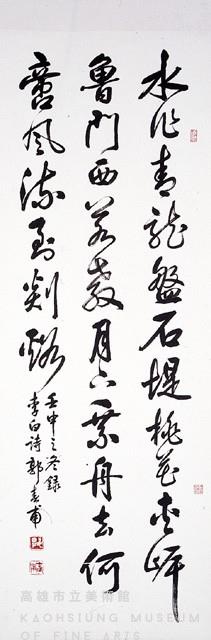 水作青龍盤石堤桃花夾岸
魯門西若教月下乘舟去何
啻風流到剡谿
壬申之冬錄
李白詩郭春甫
高雄市立美術館
KAOHSIUNG MUSEUM
OF FINE ARTS